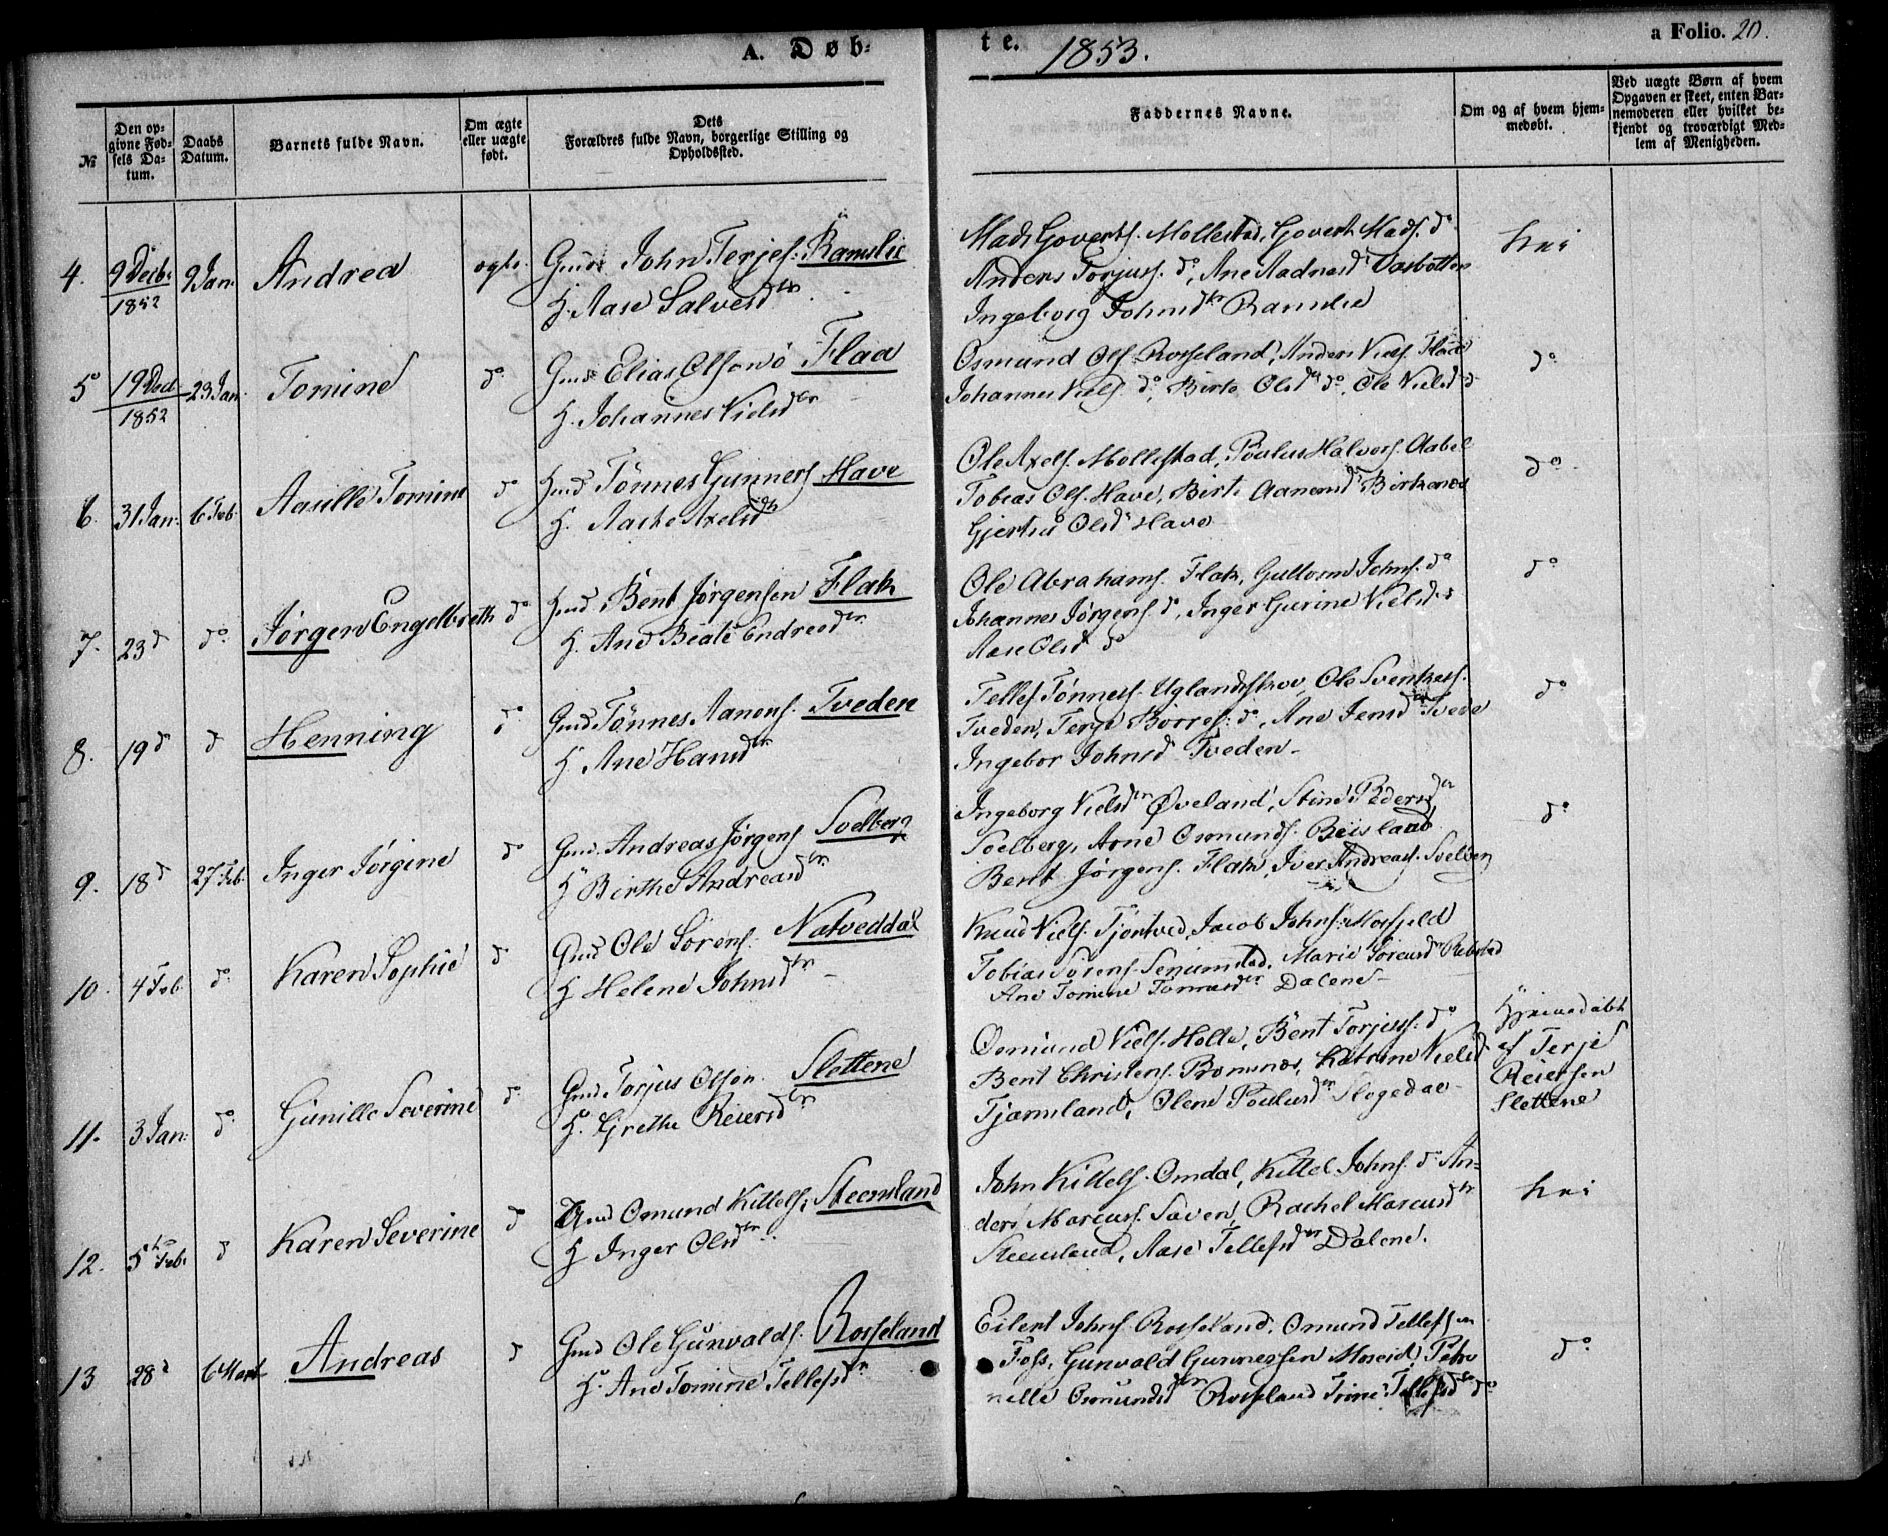 A. Døb-
te. 1853.
a Folio. 20.
№
Den op-
givne Fød-
sels Da-
tum.
Daabs
Datum.
Barnets fulde Navn.
Om ægte
eller uægte
født.
Dets
Forældres fulde Navn, borgerlige Stilling og
Opholdssted.
Faddernes Navne.
Om og af hvem hjem-
medøbt.
Ved uægte Børn af hvem
Opgaven er skeet, enten Bar-
nemoderen eller hvilket be-
kjendt og troværdigt Med-
lem af Menigheden.
4. 9 Decbr 1852 9 Jan. Andrea ægte. Gmd John Terjes. Ramslie
H. Aase Salvesdtr
Mads Goverts. Mollestad, Govert Mads. do
Anders Torjuss. do, Ane Aadnesd Vasbotten
Ingeborg Johnsdtr Ramslie
nei
5 19 Dec 1852 23 Jan. Tomine do Gmd Elias Olson Flaa
H. Johannes Nielsdtr
Osmund Ols. Rosseland, Anders Niels. Flaa
Johannes Niels. do, Birte Olsd do, Ole Nielsd do
do
6. 31 Jan. 6 Feb. Aasille Tomine do Gmd Tönnes Gunners. Have
H. Aaste Axelsdtr
Ole Axels. Mollestad, Poulus Halvors. Aabel
Tobias Ols. Have, Birte Aanensd Birkenes
Gjertru Olsd Have
do
7. 23 d do Jørgen Engelbreth do Gmd Bent Jørgensen Flak
H. Ane Beate Endresdtr
Ole Abrahams. Flak, Guttorm Johns. do
Johannes Jørgens. do, Inger Gurine Nielsd
Aase Olsd do
do
8. 19 d d Henning do Gmd Tönnes Aanens. Tveden
H. Ane Hansdtr
Tellef Tønness. Uglandsskov, Ole Svenkess.
Tveden, Terje Börres. d, Ane Jensd Tvede
Ingebor Johnsd Tveden
do
9. 18 d 27 Feb. Inger Jørgine do Gmd. Andreas Jørgens. Soelberg
H. Birthe Andreasdtr
Ingeborg Nielsdtr Øveland, Stine Pedersdtr
Soelberg, Arne Osmunds. Beisland
Bent Jørgens. Flak, Iver Andreass. Soelberg
do
10. 4 Feb do Karen Sophie d Gmd Ole Sörens. Natveddal
H Helene Johnsdtr
Knud Niels. Tjøntved, Jacob Johns. Mosfjeld
Tobias Sörens. Senumstad, Marie Sörensdtr Rabstad
Ane Tomine Tönnesdtr Dalene
11. 3 Jan. do Gunille Severine d. Gmd Torjus Olson. Slettene
H. Grethe Reiersdtr
Osmund Niels. Holte, Bent Torjuss. do
Bent Christens. Promsnes, Katrine Nielsd
Tjærnsland, Olene Poulusdtr Slogedal
Hjemmedøbt
af Terje
Reiersen
Slettene
12. 5te Feb. d Karen Severine d Gmd Osmund Kittels. Steensland
H Inger Olsdtr
John Kittels. Omdal, Kittel Johns. do An-
ders Marcuss. Saven, Rachel Marcusdtr
Steensland, Aase Tellefsdtr Dalene.
nei
13 28 d 6 Mart Andreas d Gmd Ole Gunvalds. Rosseland
H. Ane Tomine Tellefsdtr
Eilert Johns. Rosseland. Osmund Tellefsen
Foss, Gunvald Gunnersen Moseid, Petro
nelle Osmundsdtr Rosseland Trine Tellefsdtr do
do